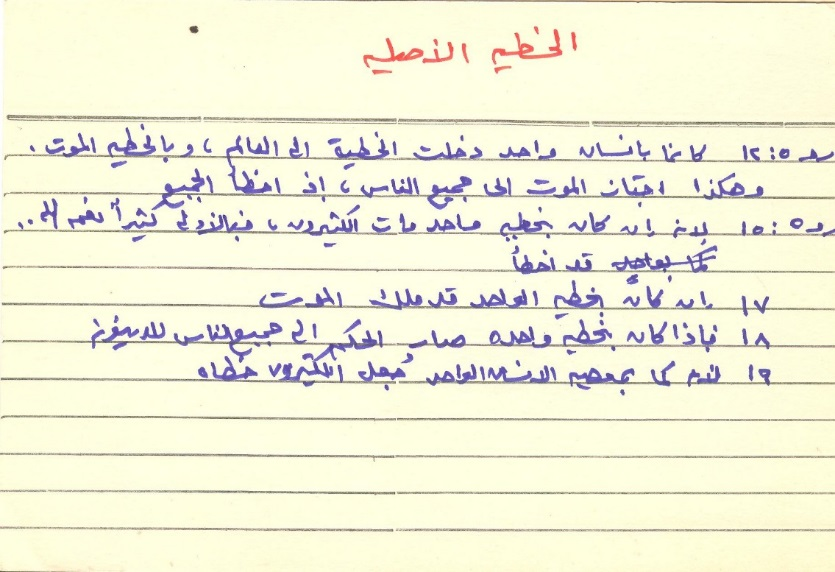 الخطيه الأصليه
رو ٥: ١٢ كأنما بانسان واحد دخلت الخطية الى العالم ، وبالخطيه الموت .
وهكذا اجتاز الموت الى جميع الناس ، إذ اخطأ الجميع
رو ٥: ١٥ لانه إن كان بخطيه واحد مات الكثيرون ، فبالأولى كثيراً نعمه الله ..
قد أخطأ
١٧ إن كان بخطيه الواحد قد ملك الموت
١٨ فإذا كان بخطيه واحده صار الحكم الى جميع الناس للدينونه
١٩ لانه كما بمعصيه الانسان الواحد جُعل الكثيرون خطاه